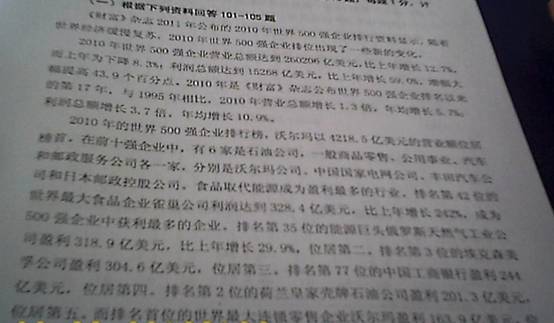 (一)根据下列资料回答 101-105 题
《财富》杂志 2011 年公布的 2010 年世界 500 强企业排行资料显示,随着
世界经济缓慢复苏,2010 年世界 500 强企业排位出现了一些新的变化。
2010 年世界 500 强企业营业总额达到 260206 亿美元,比上年增长 12.7%,
而上年为下降 8.3%;利润总额达到 15268 亿美元,比上年增长 59.0%,增幅大
幅提高 43.9 个百分点。2010 年是《财富》杂志公布世界 500 强企业排名以来
的第 17 年,与 1995 年相比,2010 年营业总额增长 1.3 倍,年均增长 5.7%;
利润总额增长 3.7 倍,年均增长 10.9%。
2010 年的世界 500 强企业排行榜,沃尔玛以 4218.5 亿美元的营业额位居
榜首,在前十强企业中,有 6 家是石油公司,一般商品零售、公用事业、汽车
和邮政服务公司各一家,分别是沃尔玛公司、中国国家电网公司、丰田汽车公
司和日本邮政控股公司。食品取代能源成为盈利最多的行业,排名第 42 位的
世界最大食品企业雀巢公司利润达到 328.4 亿美元,比上年增长 242%,成为
500 强企业中获利最多的企业,排名第 35 位的能源巨头俄罗斯天然气工业公
司盈利 318.9 亿美元,比上年增长 29.9%,位居第二,排名第 3 位的埃克森美
孚公司盈利 304.6 亿美元,位居第三,排名第 77 位的中国工商银行盈利 244
亿美元,位居第四,排名第 2 位的荷兰皇家壳牌石油公司盈利 201.3 亿美元,
位居第五。而排名首位的世界最大连锁零售企业沃尔玛盈利 163.9 亿美元,